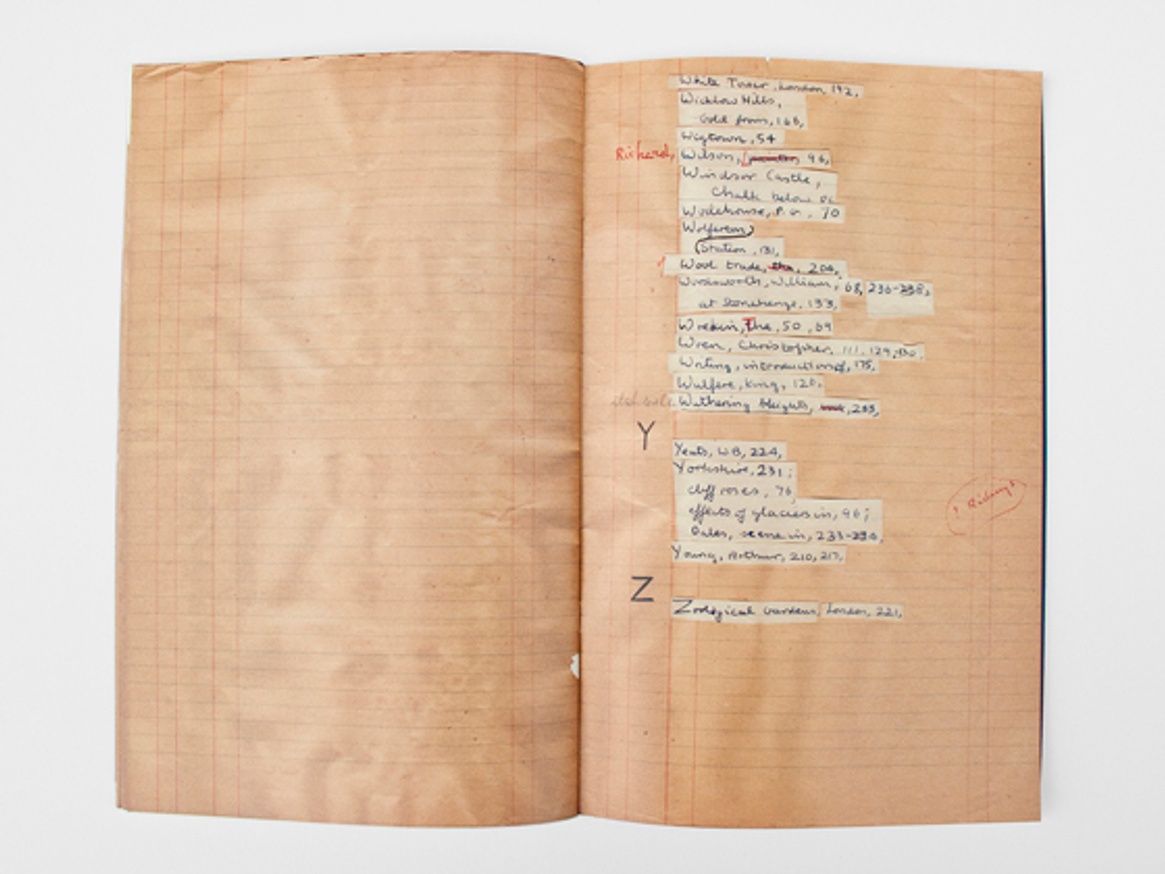 White Tower, London, 192,
Wicklow Hills,
Gold from, 168,
Wigtown, 54
Richard, Wilson, painter 96,
Windsor Castle,
Chalk below
Wodehouse, P.G., 70
Wolferton
Station, 131,
Wool trade, the, 204,
Wordsworth, William, 68, 236-238,
at Stonehenge, 133,
Wrekin, The, 50, 69
Wren, Christopher, 111, 129, 130,
Writing, introduction of, 175,
Wulfere, King, 120,
ital. Wuthering Heights, 233,
Y
Yeats, WB, 224,
Yorkshire, 231;
cliff roses, 76,
effects of glaciers in, 96;
Dales, scene in, 233-234,
Young, Arthur, 210, 217,
? Ridings
Z
Zoological Gardens, London, 221,